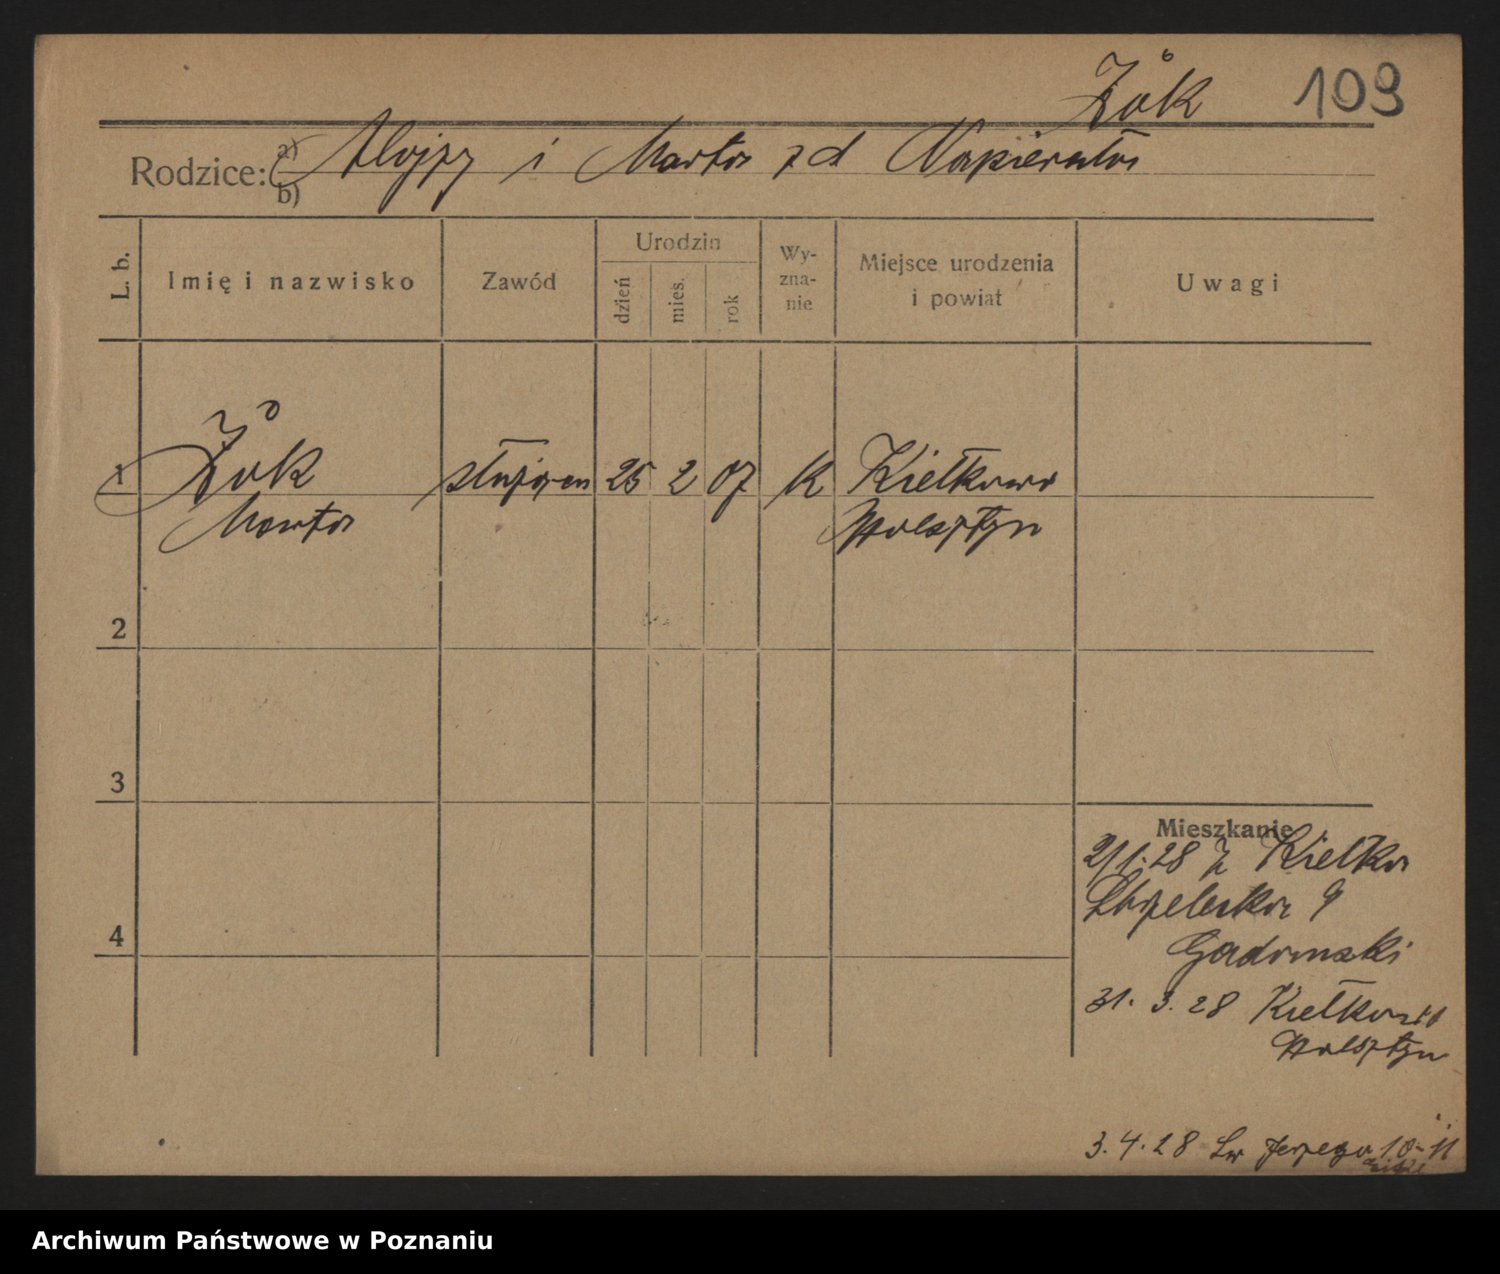 Żók 109
Rodzice: a) Alojzy i Marta zd Napierała
b)
L. b. Imię i nazwisko Zawód Urodzin dzień mies. rok Wyznanie Miejsce urodzenia i powiat Uwagi
1 Żók służąca 25 2 07 K Kiełkowo
Marta Wolsztyn
2
3
Mieszkanie
2/1.28 z Kiełko
Strzelecka 9
4
Gadomski
31. 3. 28 Kiełkowo
Wolsztyn
3. 4. 28 Św Jerzego 10-11
Archiwum Państwowe w Poznaniu